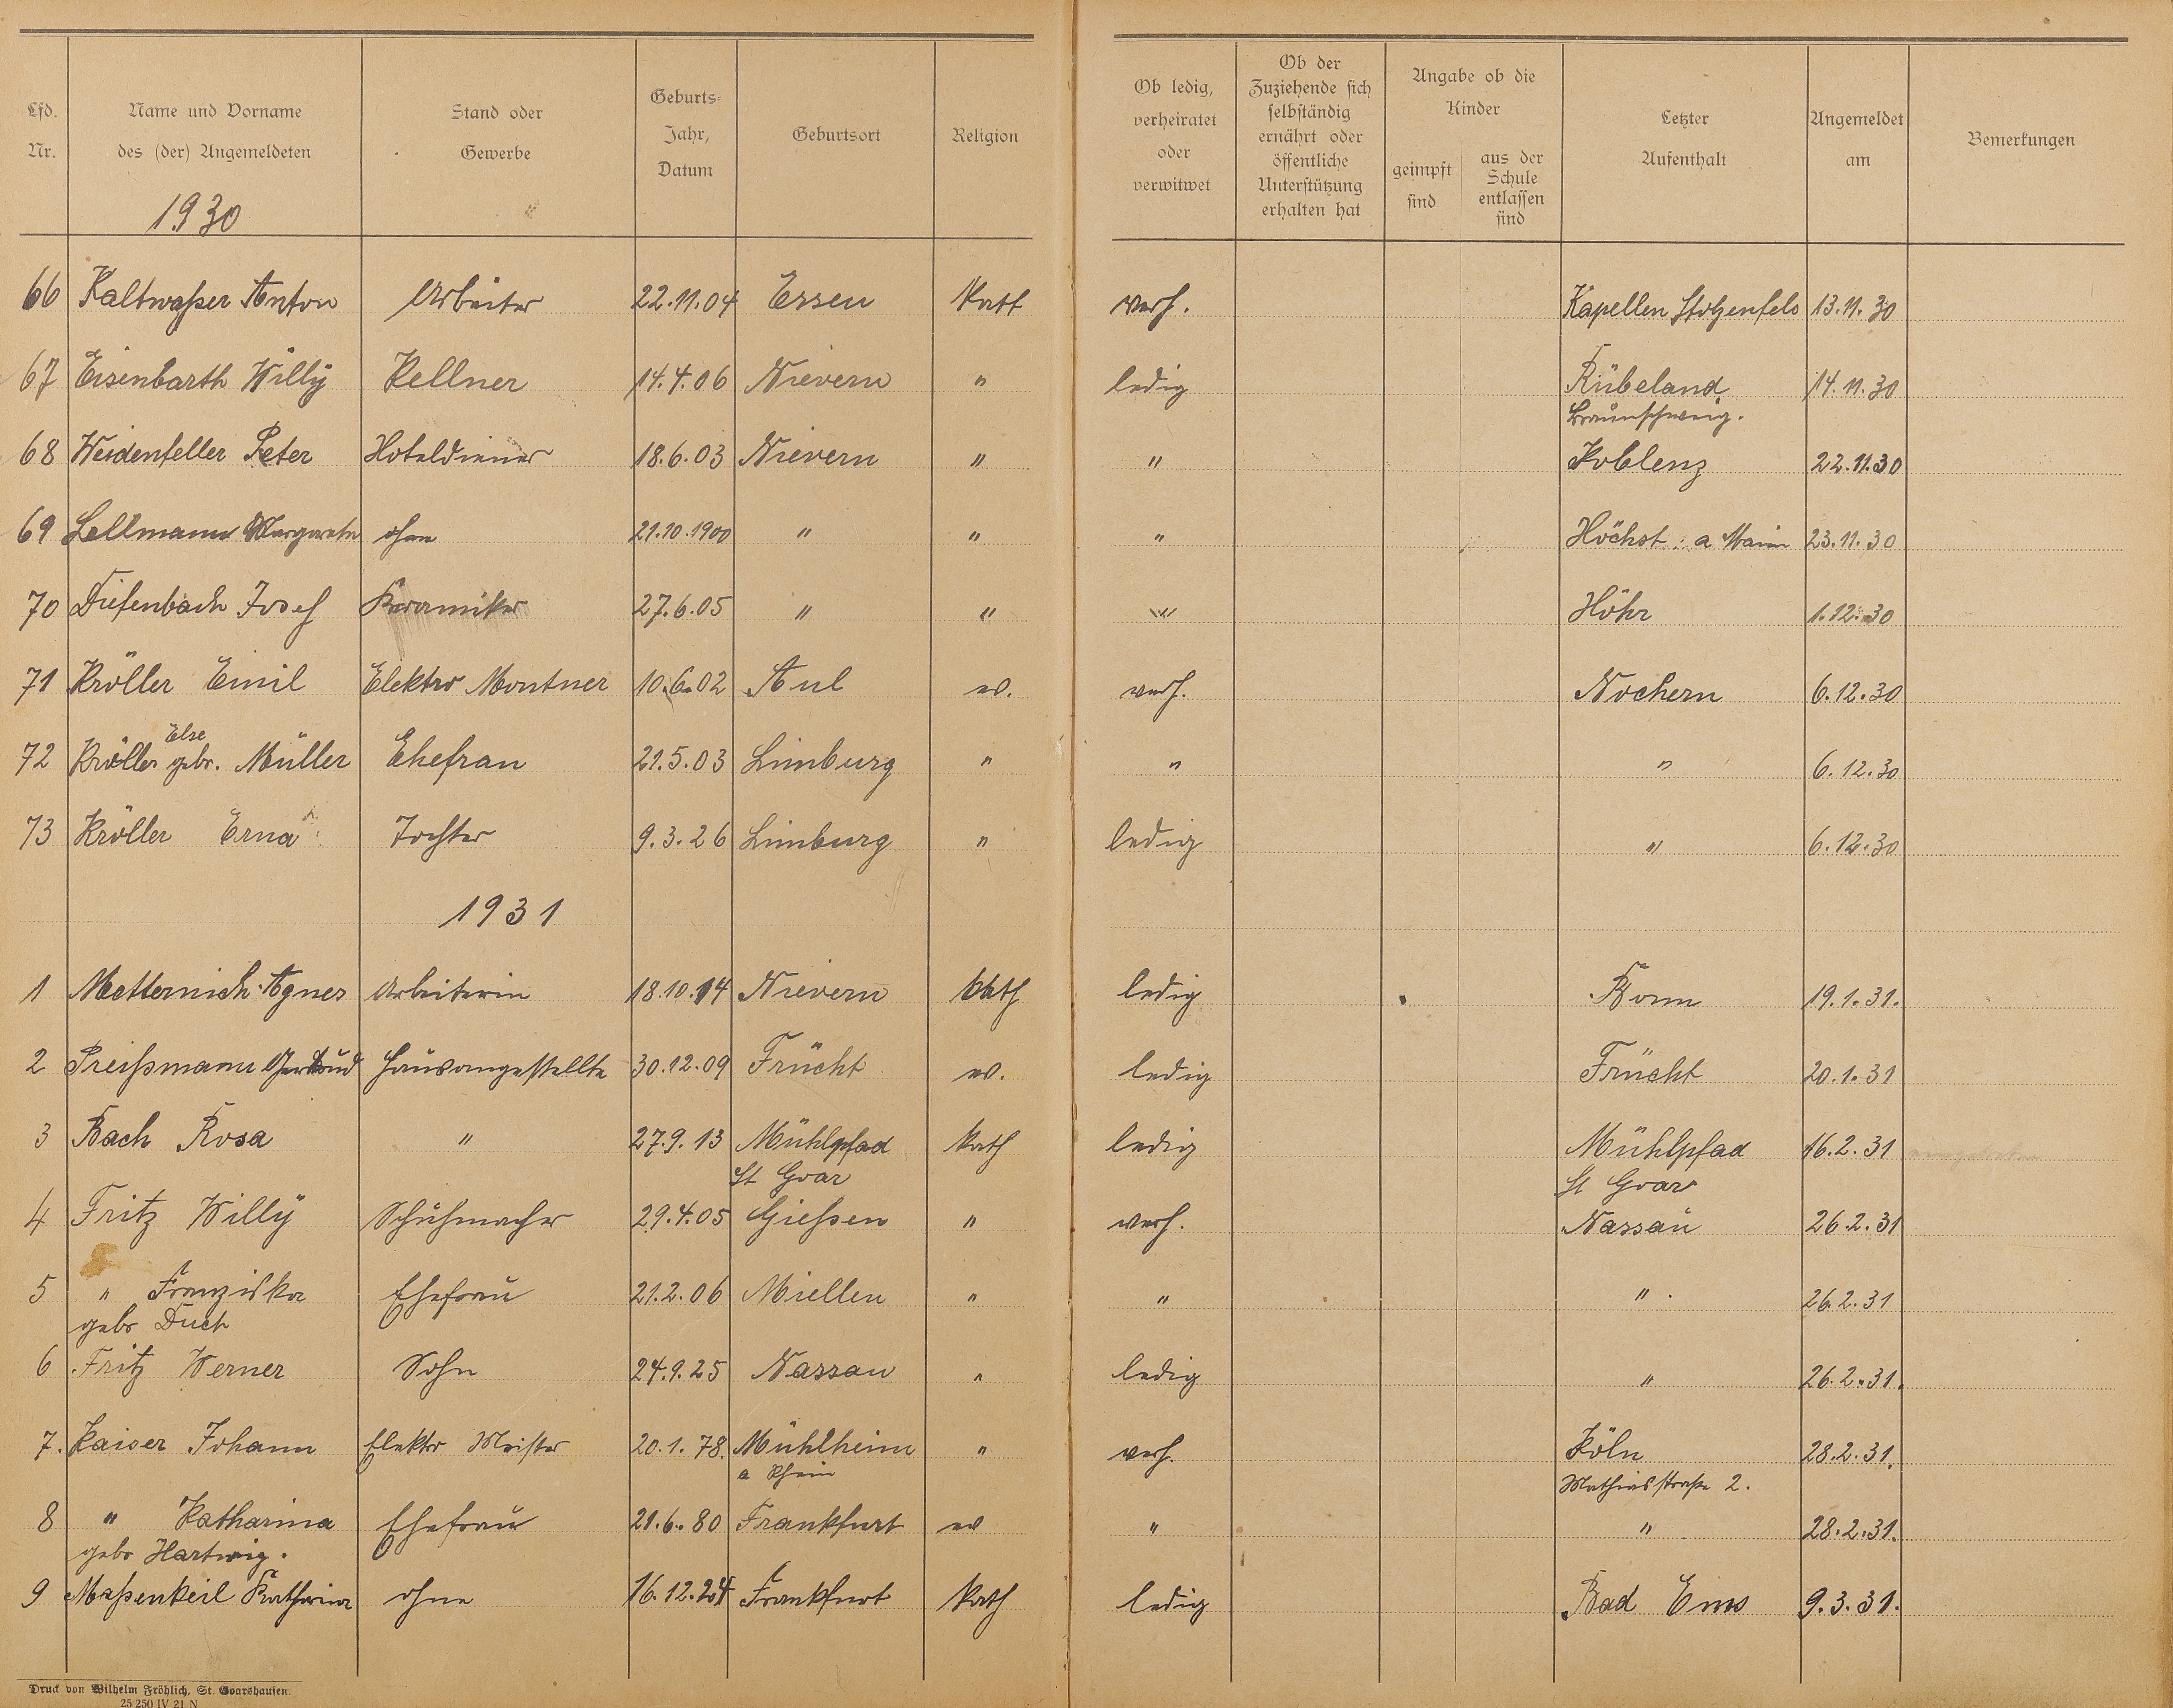 Lfd. Nr. Name und Vorname des (der) Angemeldeten Stand oder Gewerbe Geburts-Jahr, Datum Geburtsort Religion Ob ledig, verheiratet oder verwitwet Ob der Zuziehende sich selbständig ernährt oder öffentliche Unterstützung erhalten hat Angabe ob die Kinder geimpft sind aus der Schule entlassen sind Letzter Aufenthalt Angemeldet am Bemerkungen
1930
66 Kaltwaßer Anton Arbeiter 22.11.04 Essen Kath verh. Kapellen Stolzenfels 13.11.30
67 Eisenbarth Willy Kellner 14.4.06 Nievern " ledig Rübeland 14.11.30
Braunschweig.
68 Weidenfeller Peter Hoteldiener 18.6.03 Nievern " " Koblenz 22.11.30
69 Lellmann Margarete ohne 21.10.1900 " " " Höchst a Main 23.11.30
70 Diefenbach Josef Keramiker 27.6.05 " " " Höhr 1.12.30
71 Kröller Emil Elektro Montner 10.6.02 Aul ev. verh. Nochern 6.12.30
Else
72 Kröller gebr. Müller Ehefrau 21.5.03 Limburg " " " 6.12.30
73 Kröller Erna Tochter 9.3.26 Limburg " ledig " 6.12.30
1931
1 Metternich Agnes Arbeiterin 18.10.14 Nievern kath ledig Bonn 19.1.31.
2 Preißmann Gertrud Hausangestellte 30.12.09 Frücht ev. ledig Frücht 20.1.31
3 Bach Rosa " 27.9.13 Mühlpfad kath ledig Mühlpfad 16.2.31
St Goar St Goar
4 Fritz Willy Schuhmacher 29.4.05 Gießen " verh. Nassau 26.2.31
5 " Franziska Ehefrau 21.2.06 Miellen " " " 26.2.31
gebr Duch
6 Fritz Werner Sohn 24.9.25 Nassau " ledig " 26.2.31.
7. Kaiser Johann Elektro Meister 20.1.78. Mühlheim " verh. Köln 28.2.31.
a Rhein Mathiasstraße 2.
8 " Katharina Ehefrau 21.6.80 Frankfurt ev " " 28.2.31.
gebr Hartwig.
9 Maßenkeil Katharina ohne 16.12.24 Frankfurt kath ledig Bad Ems 9.3.31.
Druck von Wilhelm Fröhlich, St. Goarshausen.
25 250 IV 21 N